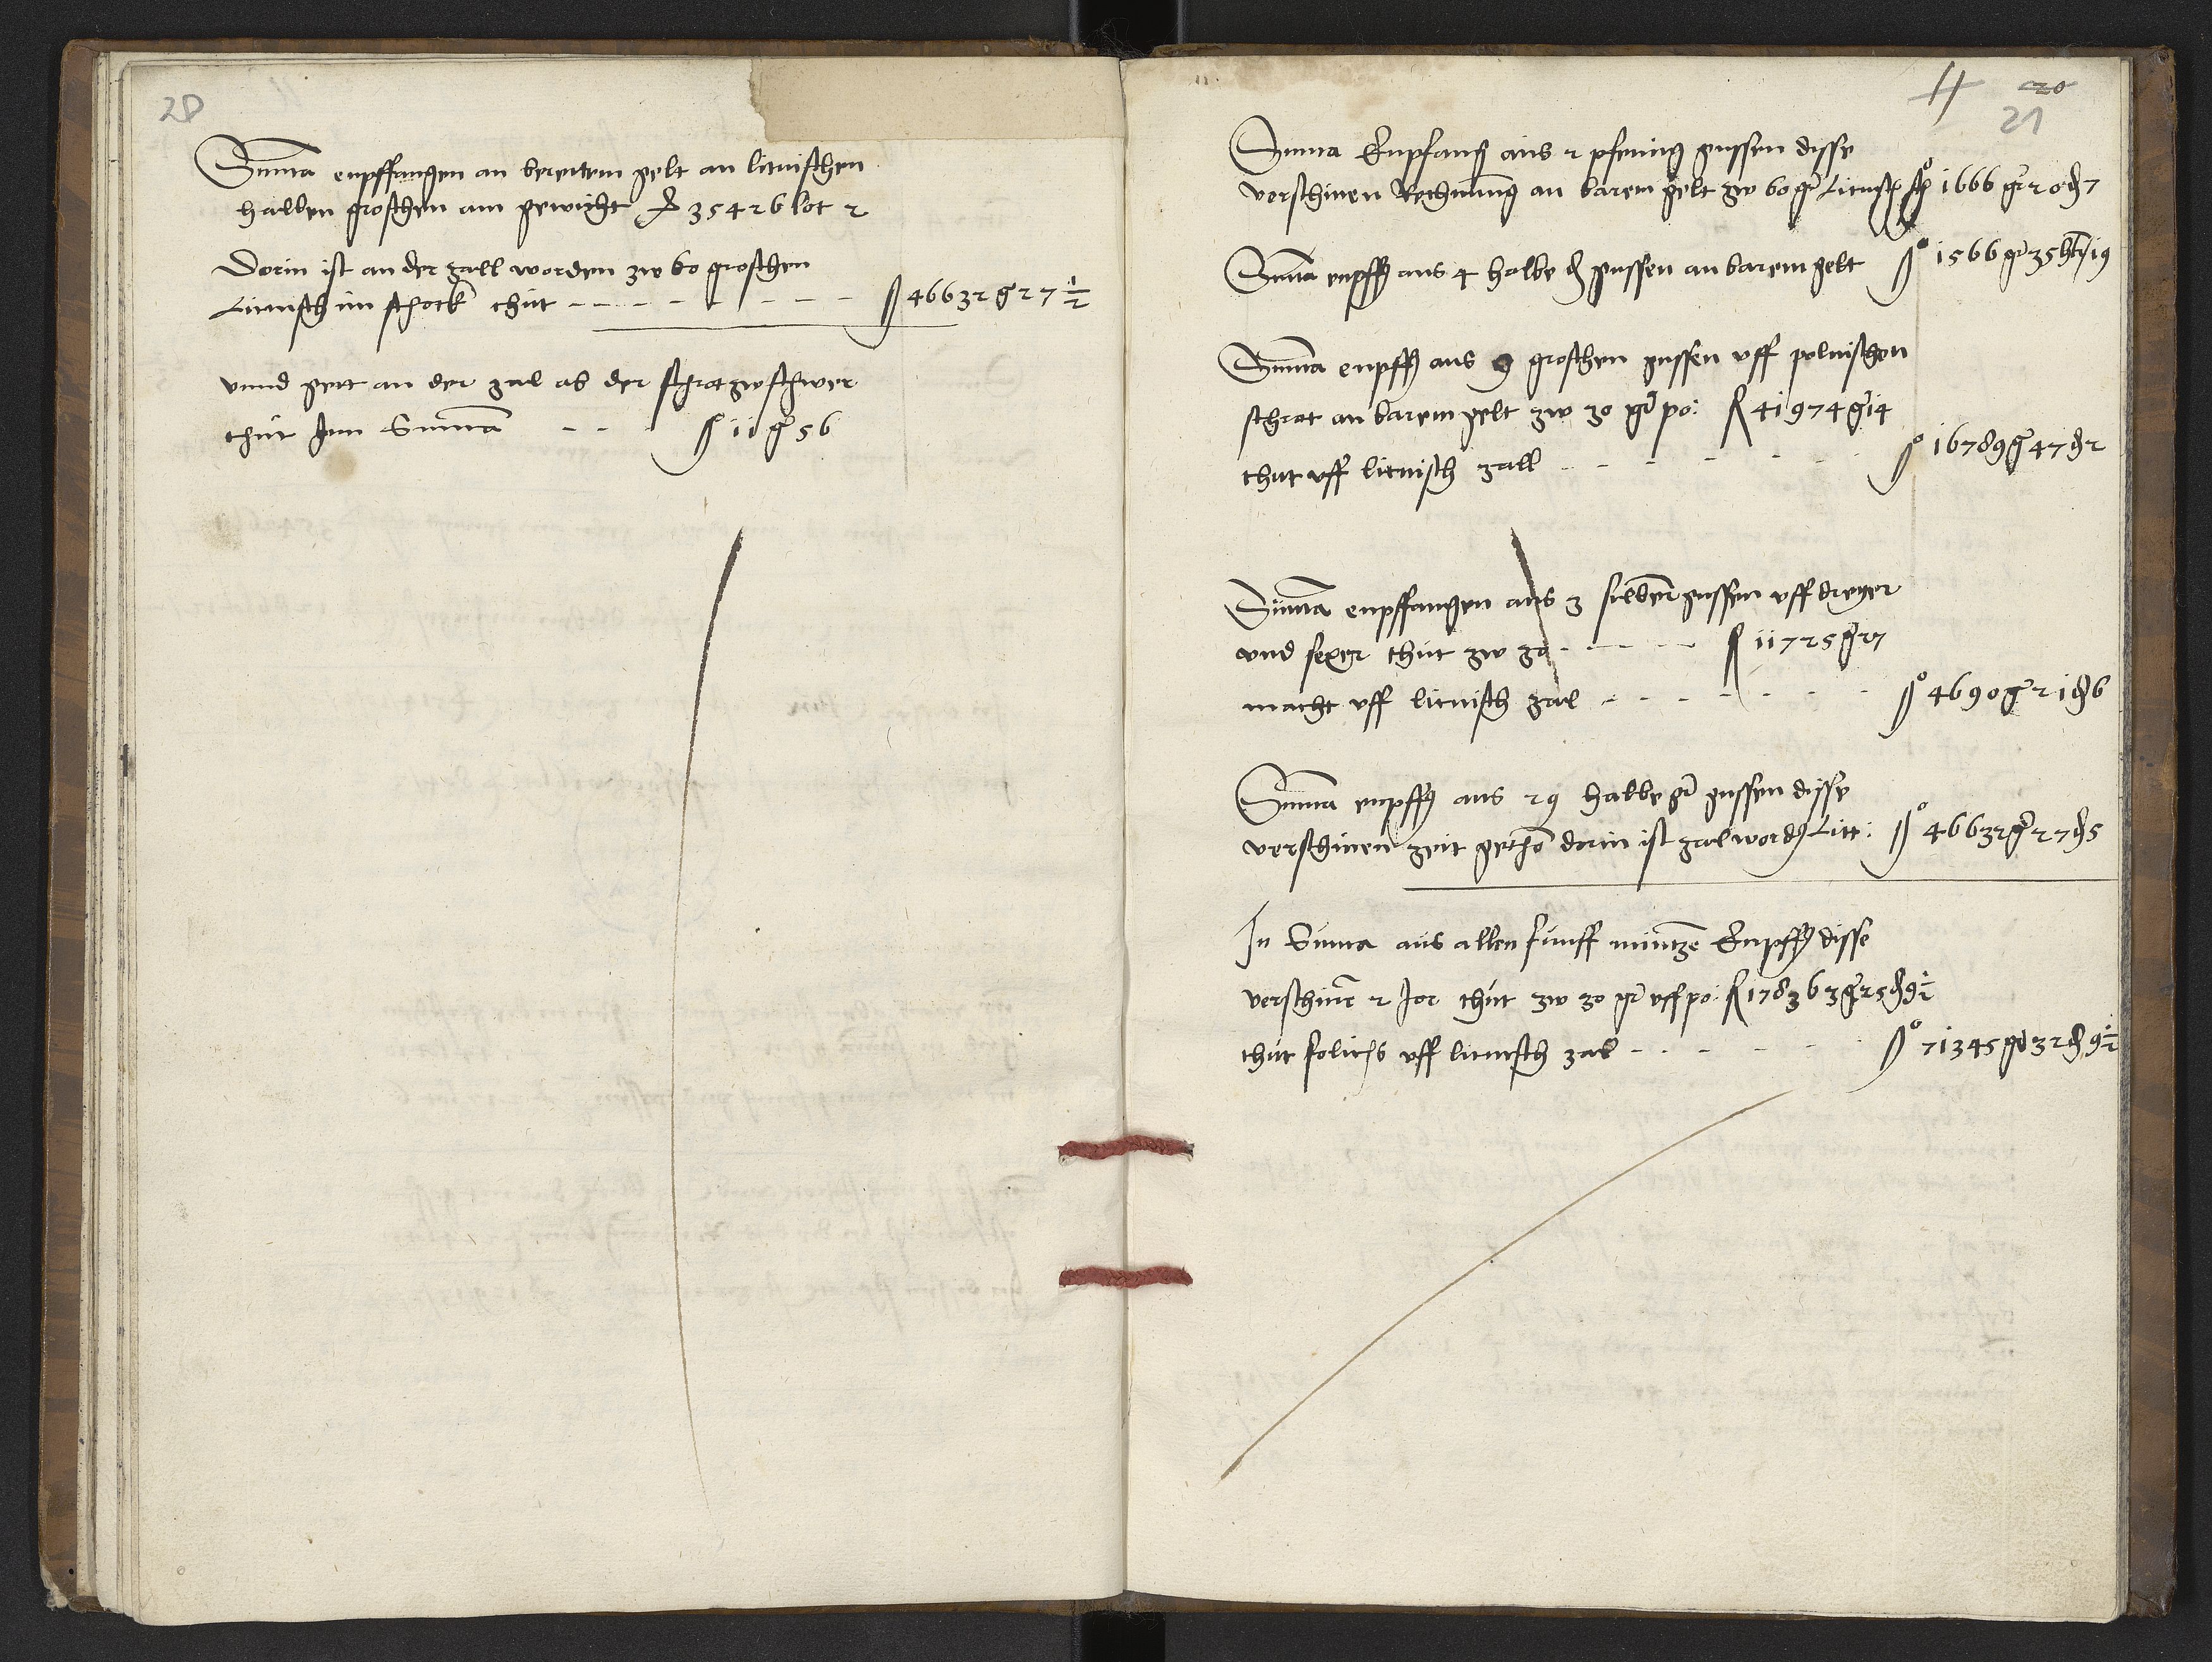 28
Summa enpffangen an bereitem gelt an litnischen
halben groschen am gewicht 35426 lot 2
Dorin ist an der zall worden zw 60 groschen
Litnisch im schock thut - - - - - - - - ß 46632 g 27 1/2
vnnd geet an der zal ab der schrot zwschwer
thut Inn Summa - - - ß 11 g 56
11 20
21
Summa Enpfang aus 2 pfening gussen disse
verschinen Rechnung an barem gelt zw 60 gr Litnisch ßo 1666 gr 20 ₰ 7
Summa enpffg aus 4 halbe ₰ gussen an barem gelt ßo 1566 gr 35 19
Summa enpffg aus 9 groschen gussen vff polnischen
schrot an barem gelt zw 30 gr po: f 41974 g 14
thut vff litnisch zall - - - - - - ßo 16789 g 47 ₰ 2
Summa enpffangen aus 3 silbern gussen vff dreyer
vnd sexer thut zw 30 - - - - f 11725 g 27
macht vff litnisch zal - - - - - - ßo 4690 g 21 ₰ 6
Summa enpffg aus 29 halbe gr gussen disse
verschinen zeit gethon dorin ist zal worden Litt: ßo 46632 g 27 ₰ 5
In Summa aus allen funff muntzen Enpffg disse
verschinen 2 Jor thut zw 30 gr vff po: f 178363 g 25 ₰ 9 1/2
thut solichs vff litnisch zal - - - - - ßo 71345 gr 32 ₰ 9 1/2